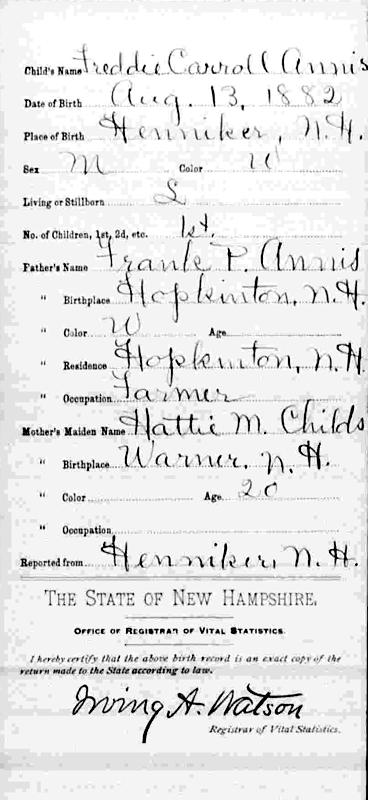 Child's Name Freddie Carroll Annis
Date of Birth Aug. 13, 1882
Place of Birth Henniker, N.H.
Sex M Color W
Living or Stillborn L
No. of Children, 1st, 2d, etc. 1st.
Father's Name Frank P. Annis
" Birthplace Hopkinton, N.H.
" Color W Age
" Residence Hopkinton, N.H.
" Occupation Farmer
Mother's Maiden Name Hattie M. Childs
" Birthplace Warner, N.H.
" Color Age 20
" Occupation
Reported from Henniker, N.H.
THE STATE OF NEW HAMPSHIRE.
OFFICE OF REGISTRAR OF VITAL STATISTICS.
I hereby certify that the above birth record is an exact copy of the
return made to the State according to law.
Irving A. Watson
Registrar of Vital Statistics.